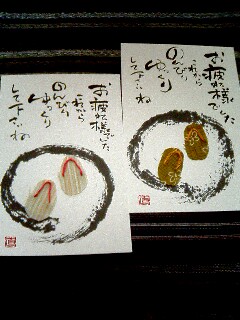 お疲れ様でした
これから
のんびり
ゆっくり
して下さいね
お疲れ様でした
これから
のんびり
ゆっくり
して下さいね